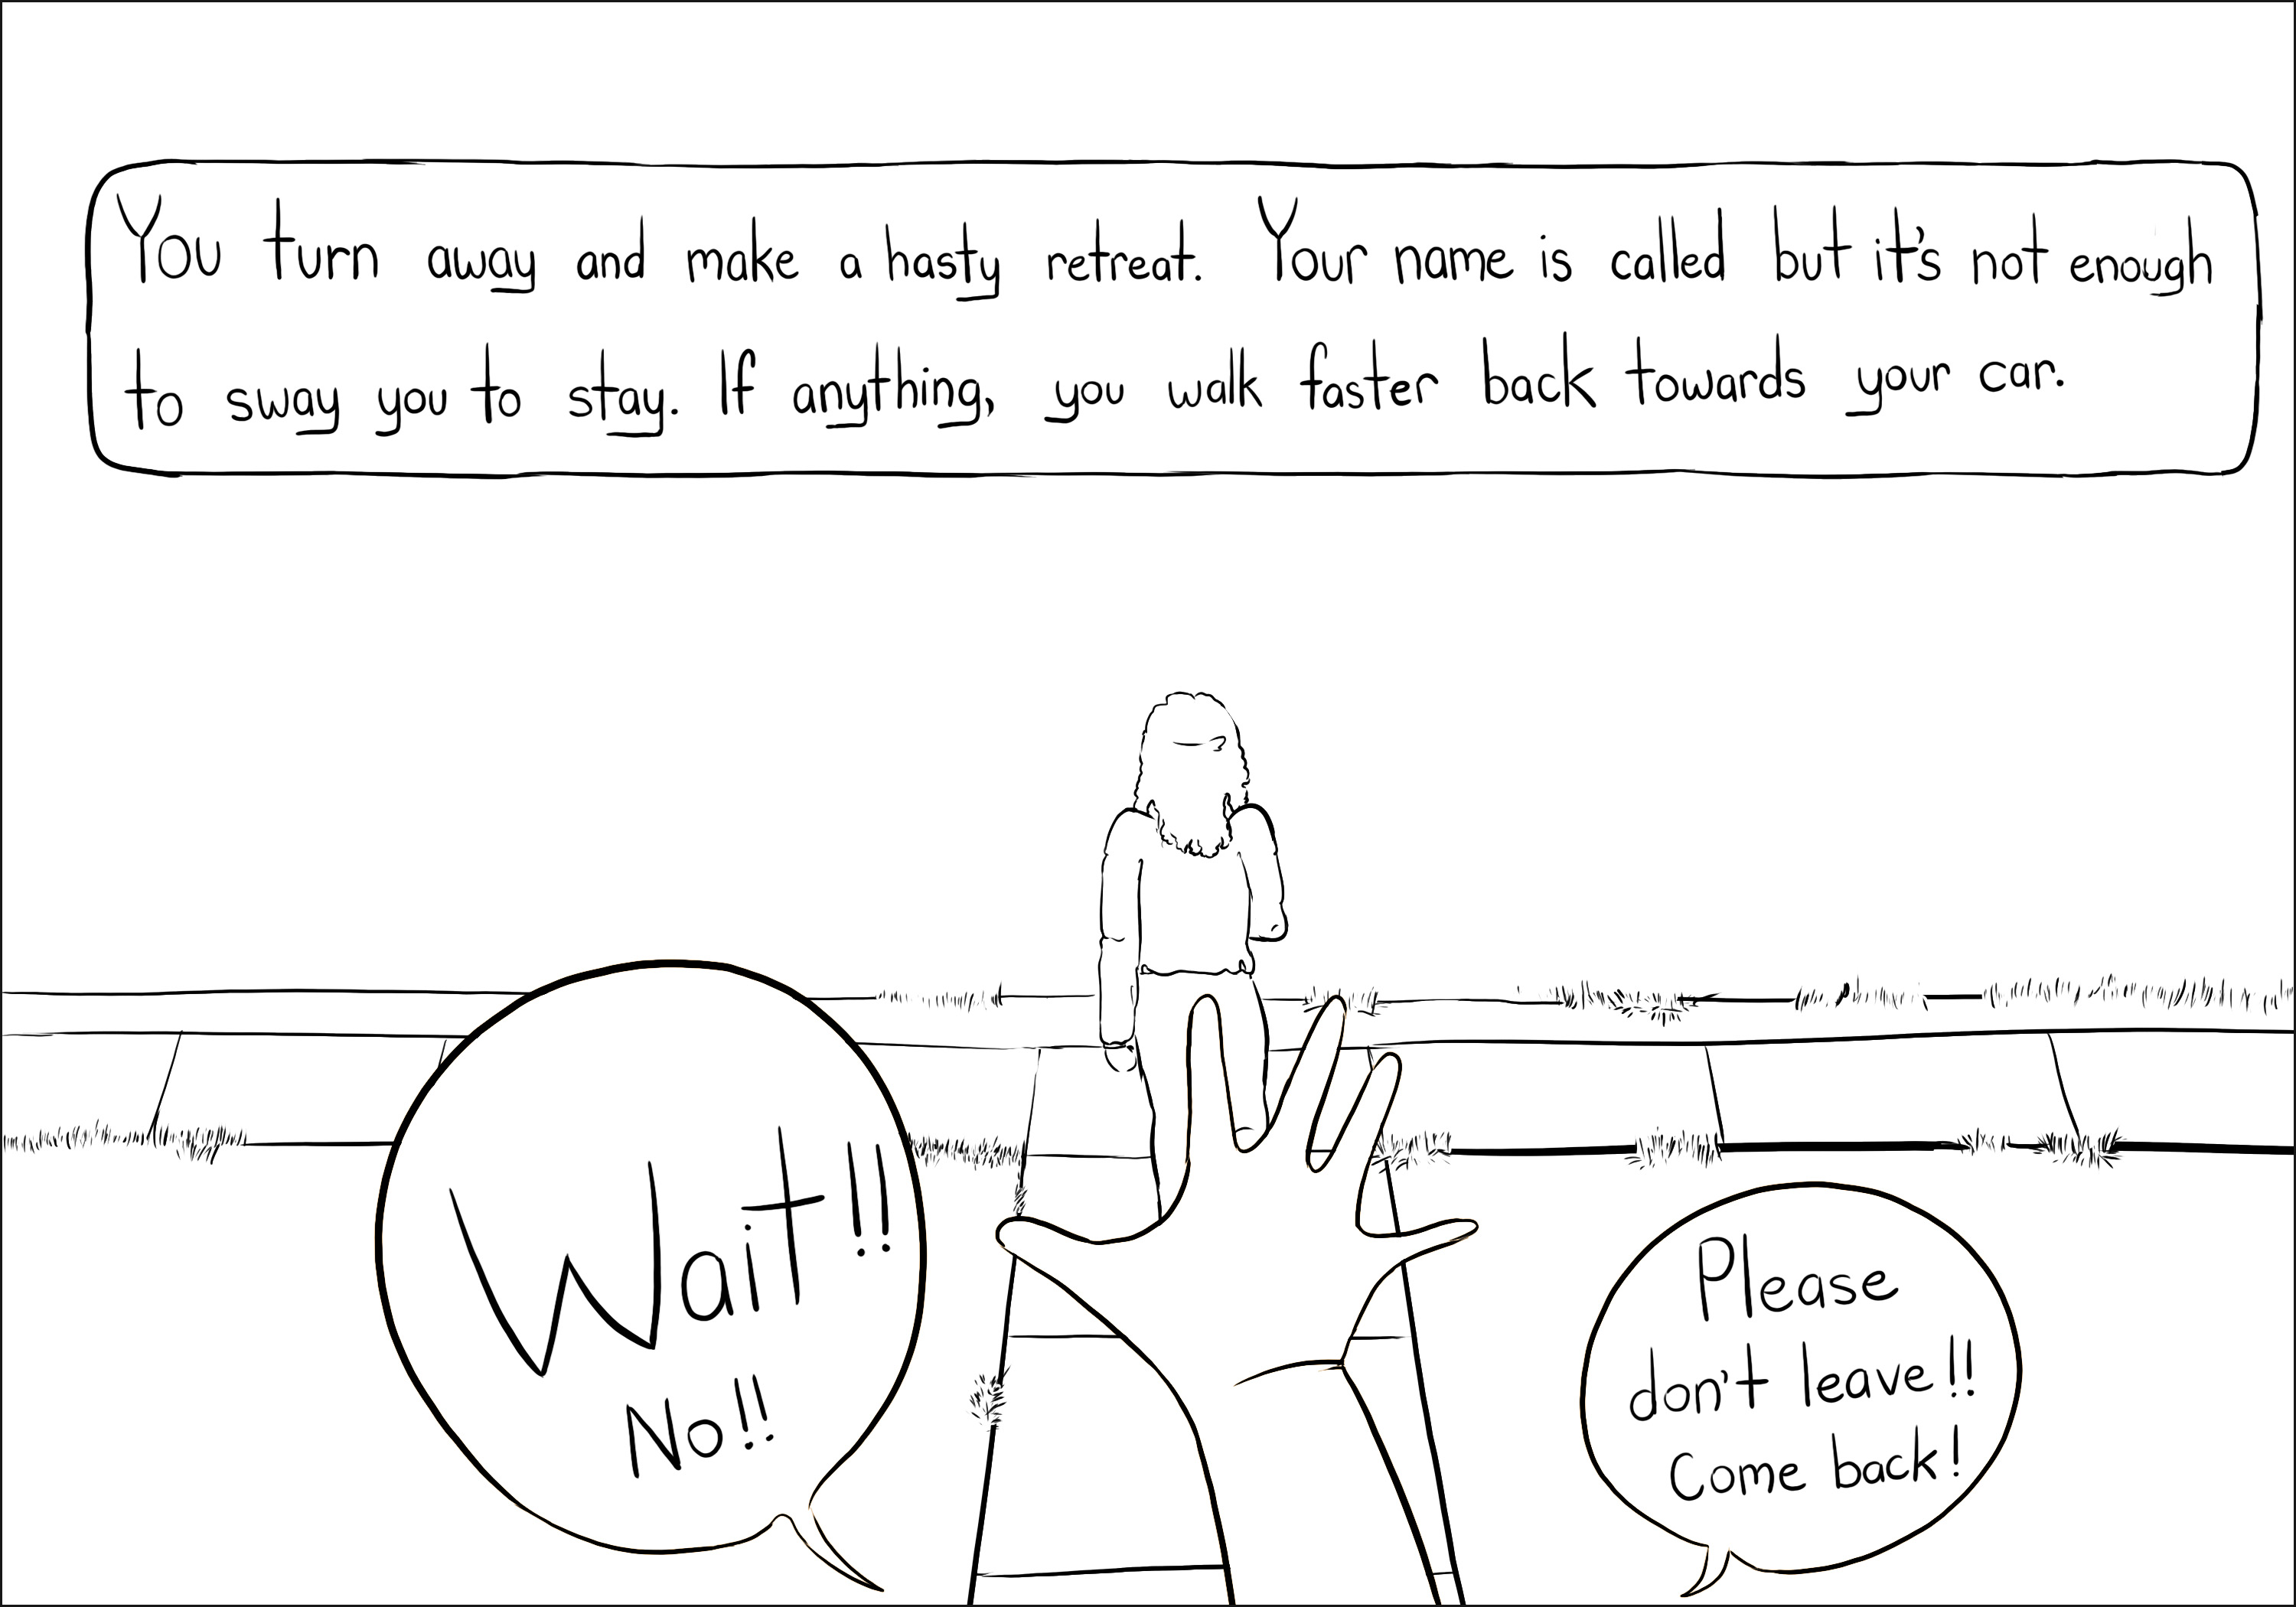 You turn away and make a hasty retreat. Your name is called but it's not enough
to sway you to stay. If anything, you walk faster back towards your car.
Wait!!
No!!
Please
don't leave!!
Come back!